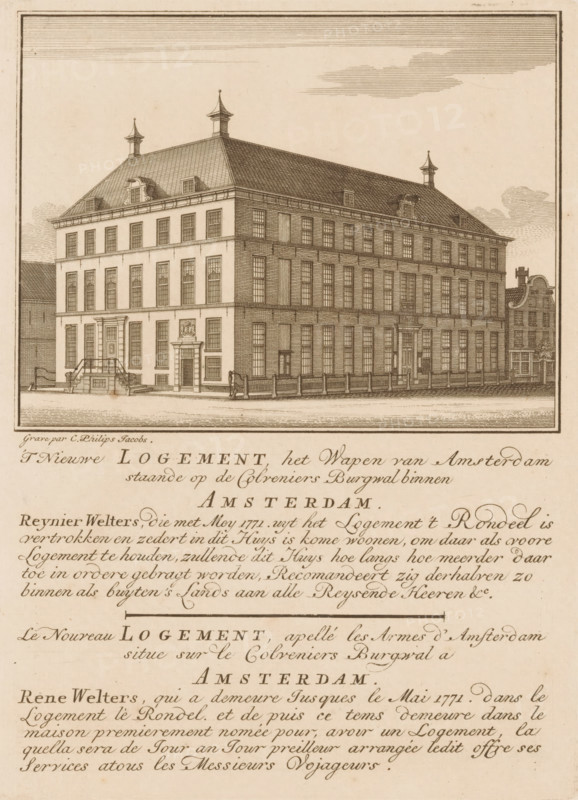 PHOTO12
PHOTO12
PHOTO12
PHOTO12
Grave par C. Philips Jacobs.
'T Nieuwe LOGEMENT, het Wapen van Amsterdam
staande op de Colveniers Burgwal binnen
AMSTERDAM.
Reynier Welters, die met Moy 1771. uyt het Logement 't Rondeel is
vertrokken en zedert in dit Huys is kome woonen, om daar als voore
Logement te houden, zullende dit Huys hoe langs hoe meerder daar
toe in ordere gebragt worden, Recomandeert zig derhalven zo
binnen als buyten 's Lands aan alle Reysende Heeren &c.
Le Nouveau LOGEMENT, apellé les Armes d'Amsterdam
situe sur le Colveniers Burgwal a
AMSTERDAM.
Rene Welters, qui a demeure Jusques le Mai 1771. dans le
Logement le Rondel. et de puis ce tems demeure dans le
maison premierement nomée pour, avoir un Logement, la
quella sera de Jour an Jour preilleur arrangée ledit offre ses
Services atous les Messieurs Vojageurs.